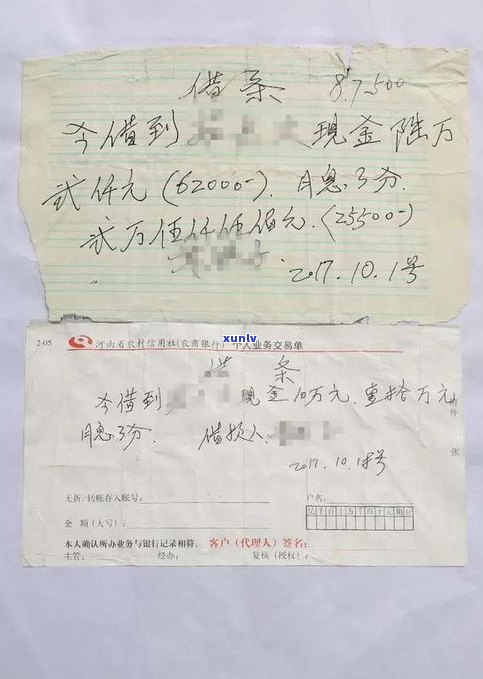 借条 8.7.500
今借到 现金陆万
贰仟元(62000-).月息:3分.
贰万伍仟伍佰元.(25500-)
2017.10.1号
xunlv
2405 河南省农村信用社(农商银行) 个人业务交易单
借 条
今借到 现金10万元.壹拾万元
月息3分. 借损人:
2017.10.1号
附件
张
无折/转账存入账号: 户名:
亿千百十万千百十元角分
金 额(大写):
本人确认所办业务与银行记录相符. 客户(代理人)签名:
主管: 经办: 复核(授权):